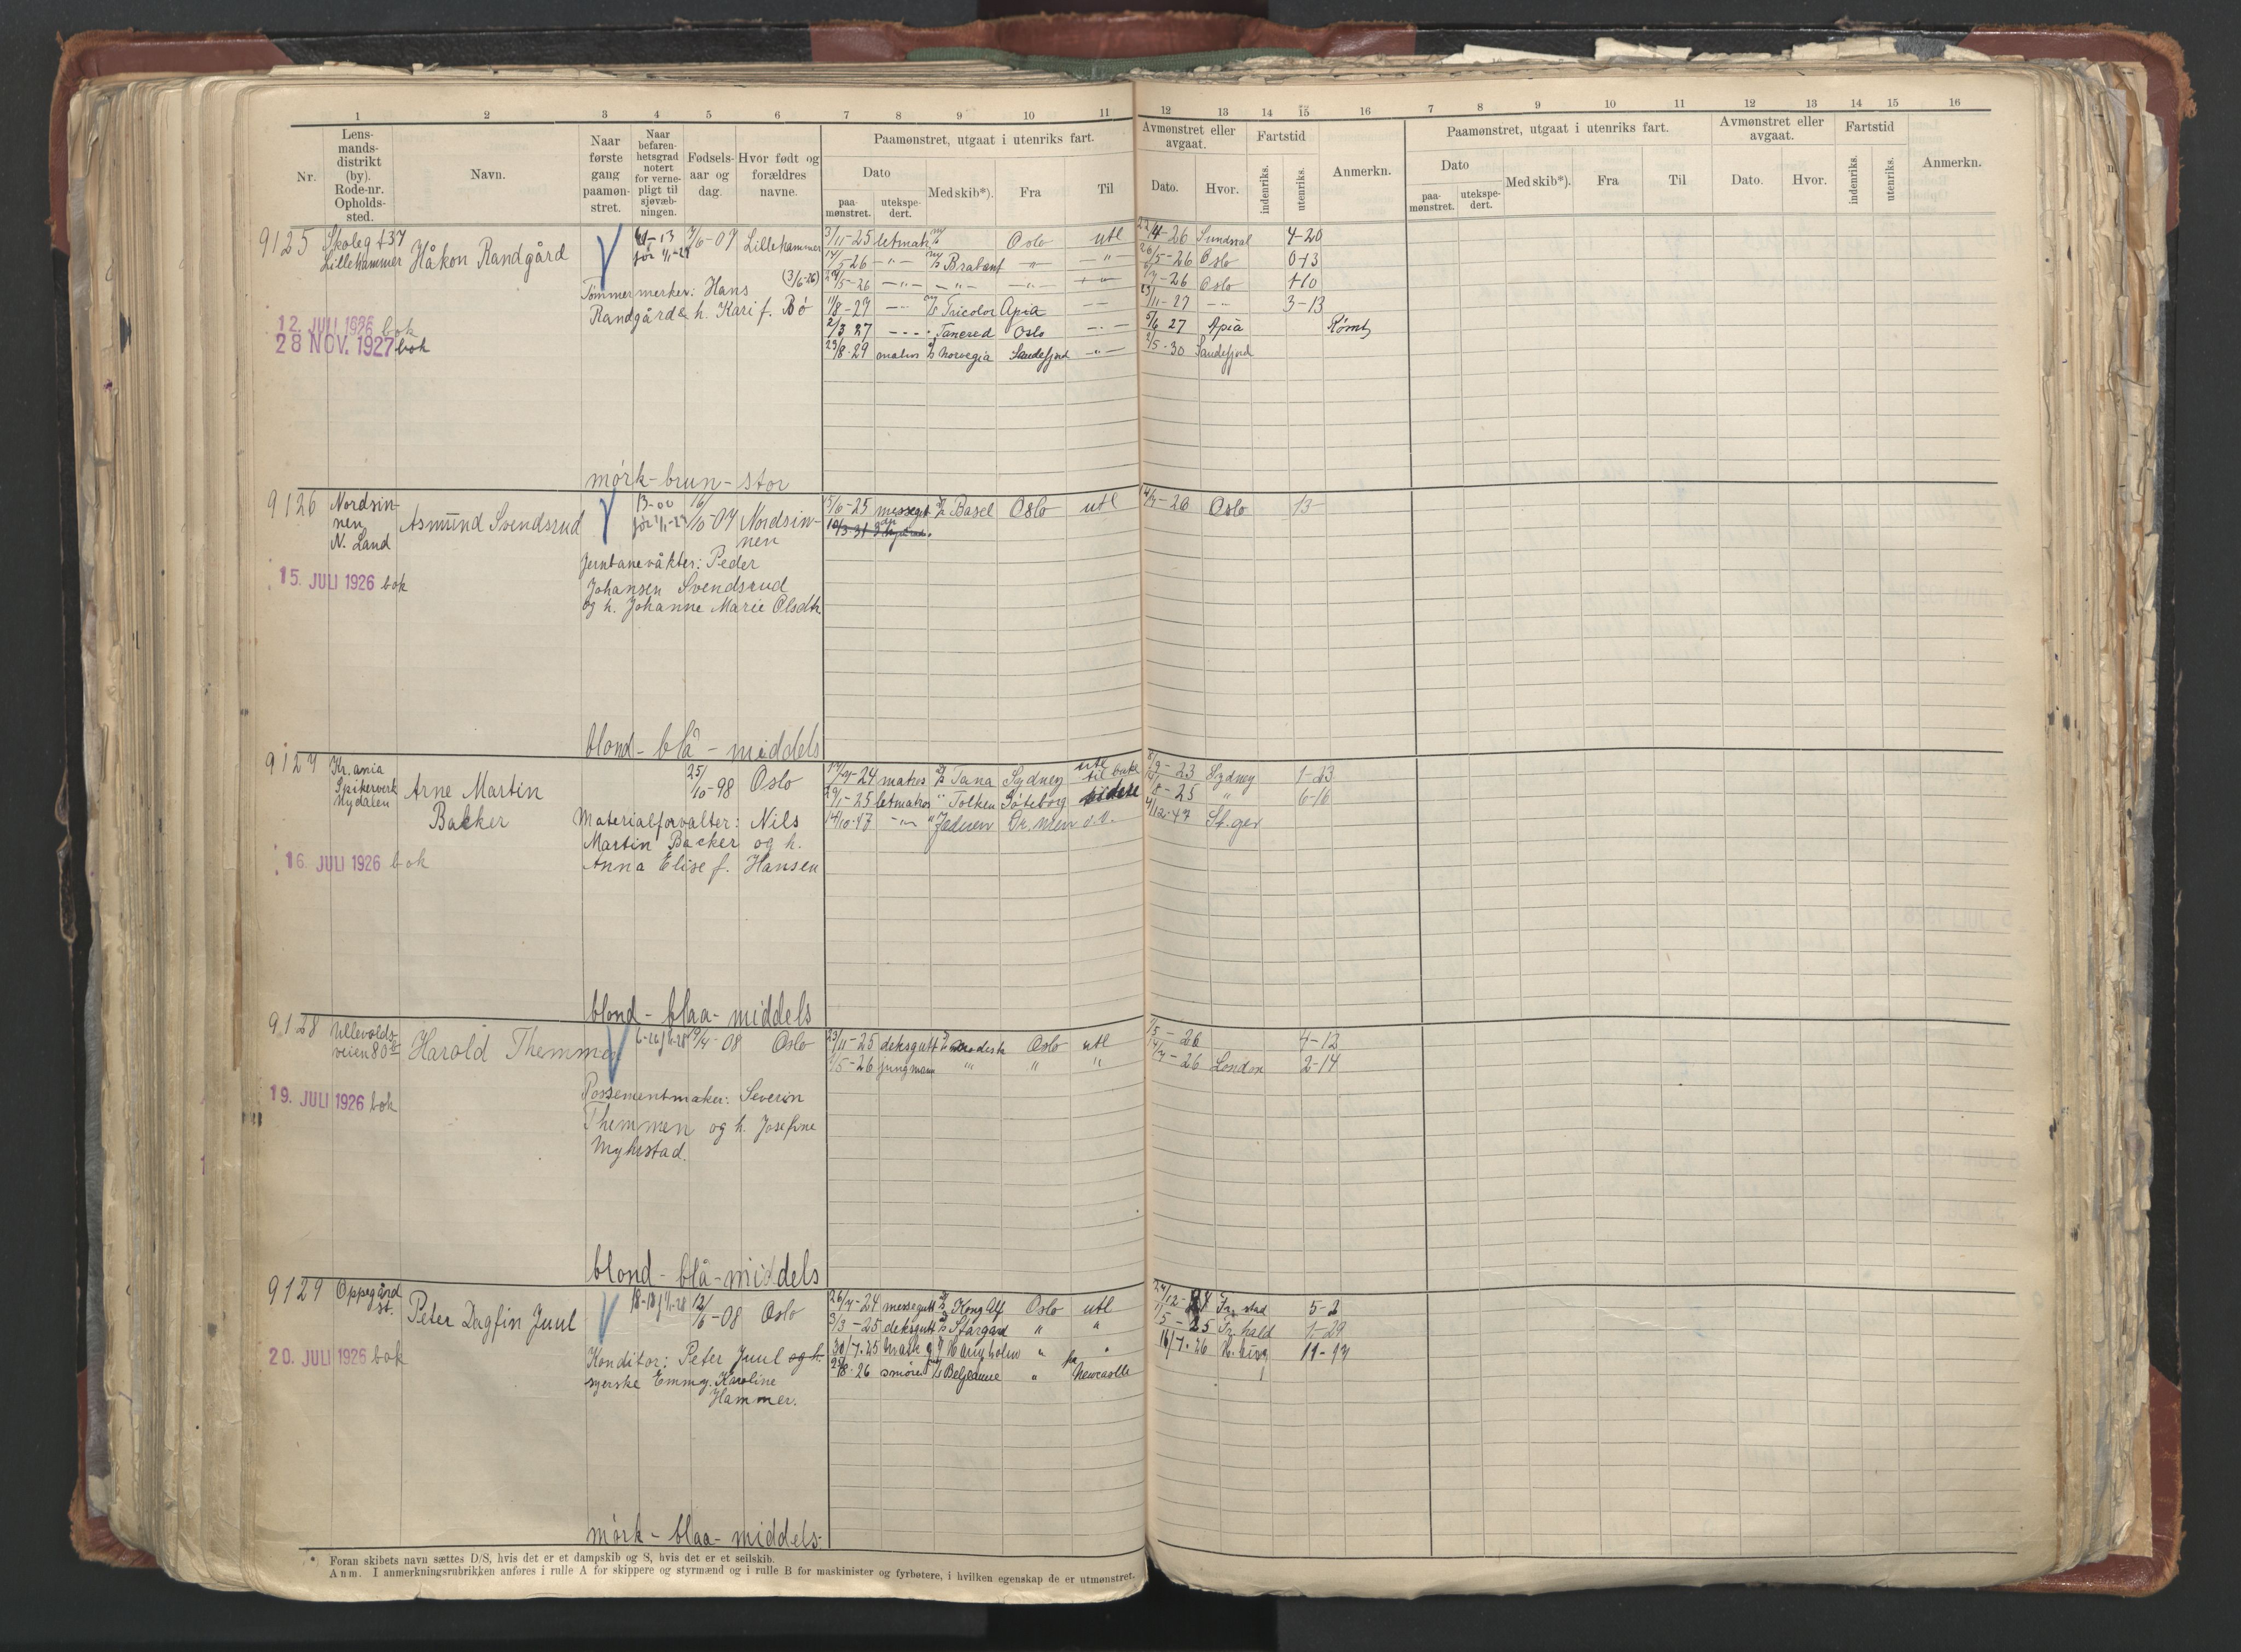 1 2 3 4 5 6 7 8 9 10 11 12 13 14 15 16 7 8 9 10 11 12 13 14 15 16
Nr.
Lens-
mands-
distrikt
(by).
Rode-nr.
Opholds-
sted.
Navn.
Naar
første
gang
paamøn-
stret.
Naar
befaren-
hetsgrad
notert
for verne-
pligt til
sjøvæb-
ningen.
Fødsels-
aar og
dag.
Hvor født og
forældres
navne.
Paamønstret, utgaat i utenriks fart.
Dato
paa-
mønstret.
utekspe-
dert.
Med skib*).
Fra
Til
Avmønstret eller
avgaat.
Dato.
Hvor.
Fartstid
indenriks.
utenriks.
Anmerkn.
Paamønstret, utgaat i utenriks fart.
Dato
paa-
mønstret.
utekspe-
dert.
Med skib*).
Fra
Til
Avmønstret eller
avgaat.
Dato.
Hvor.
Fartstid
indenriks.
utenriks.
Anmerkn.
9125
Lillehammer
Håkon Randgård
7/6-07 Lillehammer
Tømmermerker: Hans
(3/6-26)
Randgård & h. Kari f. Bø
12. JULI 1926 bok
28 NOV. 1927 bok
3/11-25 letmatr M/S Oslo utl 22/4-26 Sundsval 4-20
14/5-26 -"- M/S Brabant -"- -"- 26/5-26 Oslo 0-13
-"- -"- -"- -26 Oslo 1-10
11/8-27 M/S Tricolor Apia 3-13
2/3 27 Tancred Oslo 5/6 27 Apia Rømt
23/8-29 matros Norvegia Sandefjord -"- 2/5-30 Sandefjord
mørk-brun-stor
9126
Nordsin-
nen
N. Land
Asmund Svendsrud
13-00
16/10-07 Nordsin-
nen
Jernbanevåkter: Peder
Johansen Svendsrud
og h. Johanne Marie Olsdtr
15. JULI 1926 bok
15/6-25 messegt Basel Oslo utl 14/7-26 Oslo 13-
blond-blå-middels
9127
Kr.ania
Spikerverk
Nydalen
Arne Martin
Backer
25/10-98 Oslo
Materialforvalter: Nils
Martin Backer og h.
Anna Elise f. Hansen
16. JULI 1926 bok
matros D/S Tana Sydney utl
tilbake Sydney 1-23
29/1-25 letmatros " Tolken Göteborg -25 " 6-16
14/10-47 -"- " Jaderen 4/12-47
blond-blaa-middels
9128
Ullevolds-
veien 80
Harald Themmen
9/4-08 Oslo
Possementmaker: Severin
Themmen og h. Josefine
Myhrstad.
19. JULI 1926 bok
23/11-25 deksgutt Modesta Oslo utl /5-26 4-12
/5-26 jungmann " " " -26 London 2-14
blond-blå-middels
9129
Oppegård
st.
Peter Dagfin Juul
12/6-08 Oslo
Konditor: Peter Juul og h.
syerske Emmy Karoline
Hammer.
20. JULI 1926 bok
26/7-24 messegutt D/S Kong Alf Oslo utl Fr. stad 5-2
3/3-25 deksgutt D/S Stargard " " 1/5-25 Fr. hald 1-29
30/7-25 " " 16/7-26 11-17
-26 smører " fra Newcastle
mørk-blaa-middels.
* Foran skibets navn sættes D/S, hvis det er et dampskib og S, hvis det er et seilskib.
Anm. I anmerkningsrubrikken anføres i rulle A for skippere og styrmænd og i rulle B for maskinister og fyrbøtere, i hvilken egenskap de er utmønstret.